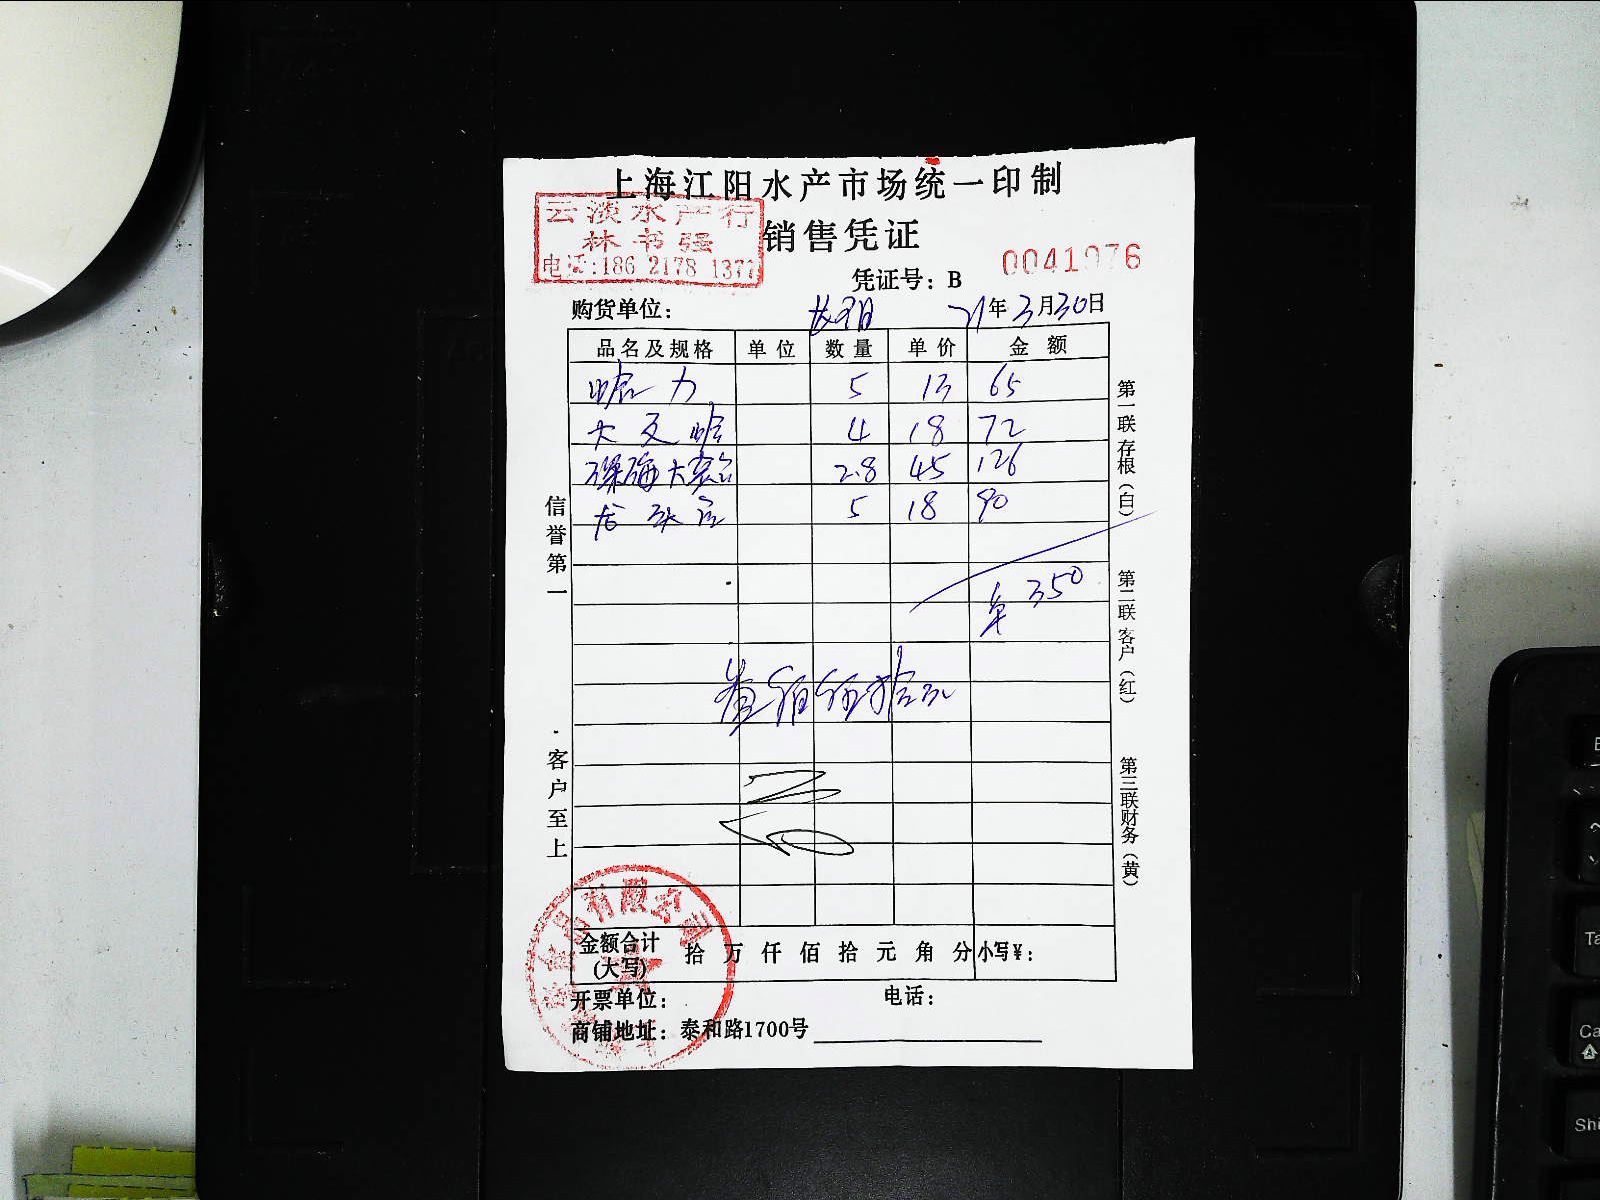 上海江阳水产市场统一印制
销售凭证
云淡水产行
林书强
电话:186 2178 1377
凭证号：B 0041976
购货单位：
21年3月30日
品名及规格 单位 数量 单价 金额
哈力 5 13 65
大文哈 4 18 72
深海大 2.8 45 126
龙头 5 18 90
350
叁佰伍拾元
信誉第一
客户至上
第一联存根（白）
第二联客户（红）
第三联财务（黄）
有限公司
金额合计(大写) 拾万仟佰拾元角分 小写¥：
开票单位： 电话：
商铺地址：泰和路1700号
Ta
Ca
Shi